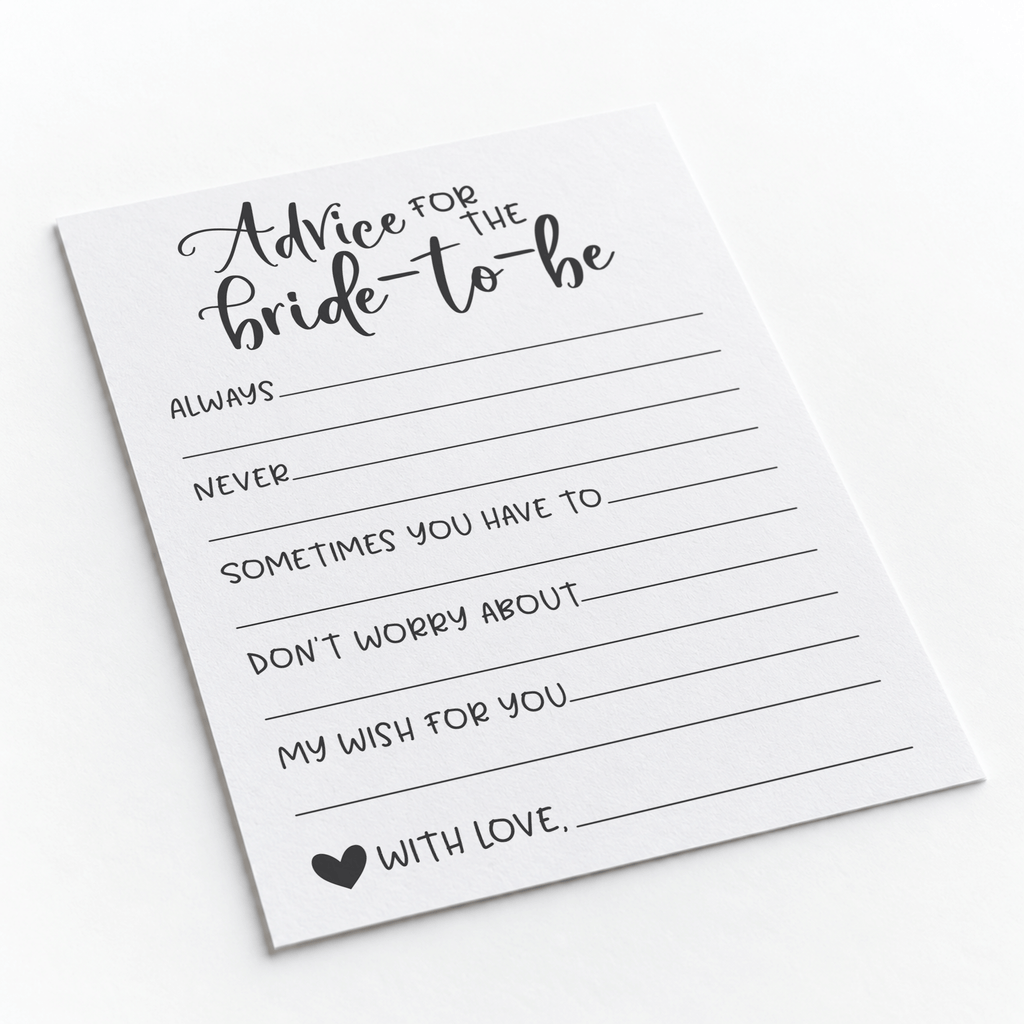 Advice FOR THE
bride-to-be
ALWAYS
NEVER
SOMETIMES YOU HAVE TO
DON'T WORRY ABOUT
MY WISH FOR YOU
WITH LOVE,